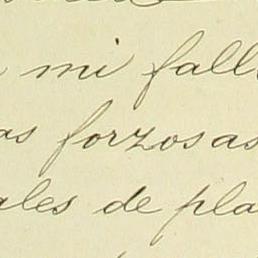 mi fall
as forzosas
ales de pla